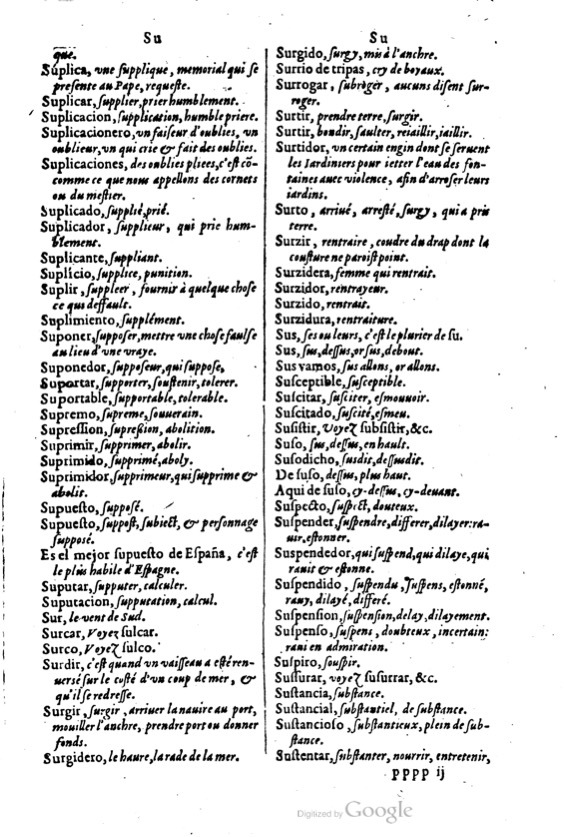 Su
que.
Súplica, vne ſupplique, memorial qui ſe
preſente au Pape, requeſte.
Suplicar, ſupplier, prier humblement.
Suplicacion, ſupplication, humble priere.
Suplicacionero, vn faiſeur d'oublies, vn
oublieur, vn qui crie & fait des oublies.
Suplicaciones, des oublies pliees, c'eſt cō-
comme ce que nous appellons des cornets
ou du meſtier.
Suplicado, ſupplié, prié.
Suplicador, ſupplieur, qui prie hum-
blement.
Suplicante, ſuppliant.
Suplício, ſupplice, punition.
Suplir, ſuppleer, fournir à quelque choſe
ce qui deffault.
Suplimiento, ſupplément.
Suponer, ſuppoſer, mettre vne choſe faulſe
au lieu d'vne vraye.
Suponedor, ſuppoſeur, qui ſuppoſe,
Suportar, ſupporter, ſouſtenir, tolerer.
Suportable, ſupportable, tolerable.
Supremo, ſupreme, ſouuerain.
Supreſſion, ſupreſſion, abolition.
Suprimir, ſupprimer, abolir.
Suprimido, ſupprimé, aboly.
Suprimidor, ſupprimeur, qui ſupprime &
abolit.
Supueſto, ſuppoſé.
Supueſto, ſuppoſt, ſubiect, & perſonnage
ſuppoſé.
Es el mejor ſupueſto de Eſpaña, c'eſt
le plus habile d'Eſpagne.
Suputar, ſupputer, calculer.
Suputacion, ſupputation, calcul.
Sur, le vent de Sud.
Surcar, Voyez ſulcar.
Surco, Voyez ſulco.
Surdir, c'eſt quand vn vaiſſeau a eſté ren-
uersé ſur le coſté d'vn coup de mer, &
qu'il ſe redreſſe.
Surgir, ſurgir, arriuer la nauire au port,
mouiller l'anchre, prendre port ou donner
fonds.
Surgidero, le haure, la rade de la mer.
Su
Surgido, ſurgy, mis à l'anchre.
Surrio de tripas, cry de boyaux.
Surrogar, ſubroger, aucuns diſent ſur-
roger.
Surtir, prendre terre, ſurgir.
Surtir, bondir, ſaulter, reiaillir, iaillir.
Surtidor, vn certain engin dont ſe ſeruent
les Iardiniers pour ietter l'eau des fon-
taines auec violence, afin d'arroſer leurs
iardins.
Surto, arriué, arreſté, ſurgy, qui a pris
terre.
Surzir, rentraire, coudre du drap dont la
couſture ne paroiſt point.
Surzidera, femme qui rentrait.
Surzidor, rentrayeur.
Surzido, rentrait.
Surzidura, rentraiture.
Sus, ſes ou leurs, c'eſt le plurier de ſu.
Sus, ſus, deſſus, or ſus, debout.
Sus vamos, ſus allons, or allons.
Suſceptible, ſuſceptible.
Suſcitar, ſuſciter, eſmouuoir.
Suſcitado, ſuſcité, eſmeu.
Suſiſtir, Voyez ſubſiſtir, &c.
Suſo, ſus, deſſus, en hault.
Suſodicho, ſusdit, deſſusdit.
De ſuſo, deſſus, plus haut.
Aqui de ſuſo, cy-deſſus, cy-deuant.
Suſpecto, ſuſpect, douteux.
Suſpender, ſuſpendre, differer, dilayer: ra-
uir, eſtonner.
Suſpendedor, qui ſuſpend, qui dilaye, qui
rauit & eſtonne.
Suſpendido, ſuſpendu, ſuſpens, eſtonné,
rauy, dilayé, differé.
Suſpenſion, ſuſpenſion, delay, dilayement.
Suſpenſo, ſuſpens, doubteux, incertain:
raui en admiration.
Suſpiro, ſouſpir.
Suſſurar, voyez ſuſurrar, &c.
Suſtancia, ſubſtance.
Suſtancial, ſubſtantiel, de ſubſtance.
Suſtancioſo, ſubſtantieux, plein de ſub-
ſtance.
Suſtentar, ſubſtanter, nourrir, entretenir,
PPPP ij
Digitized by Google